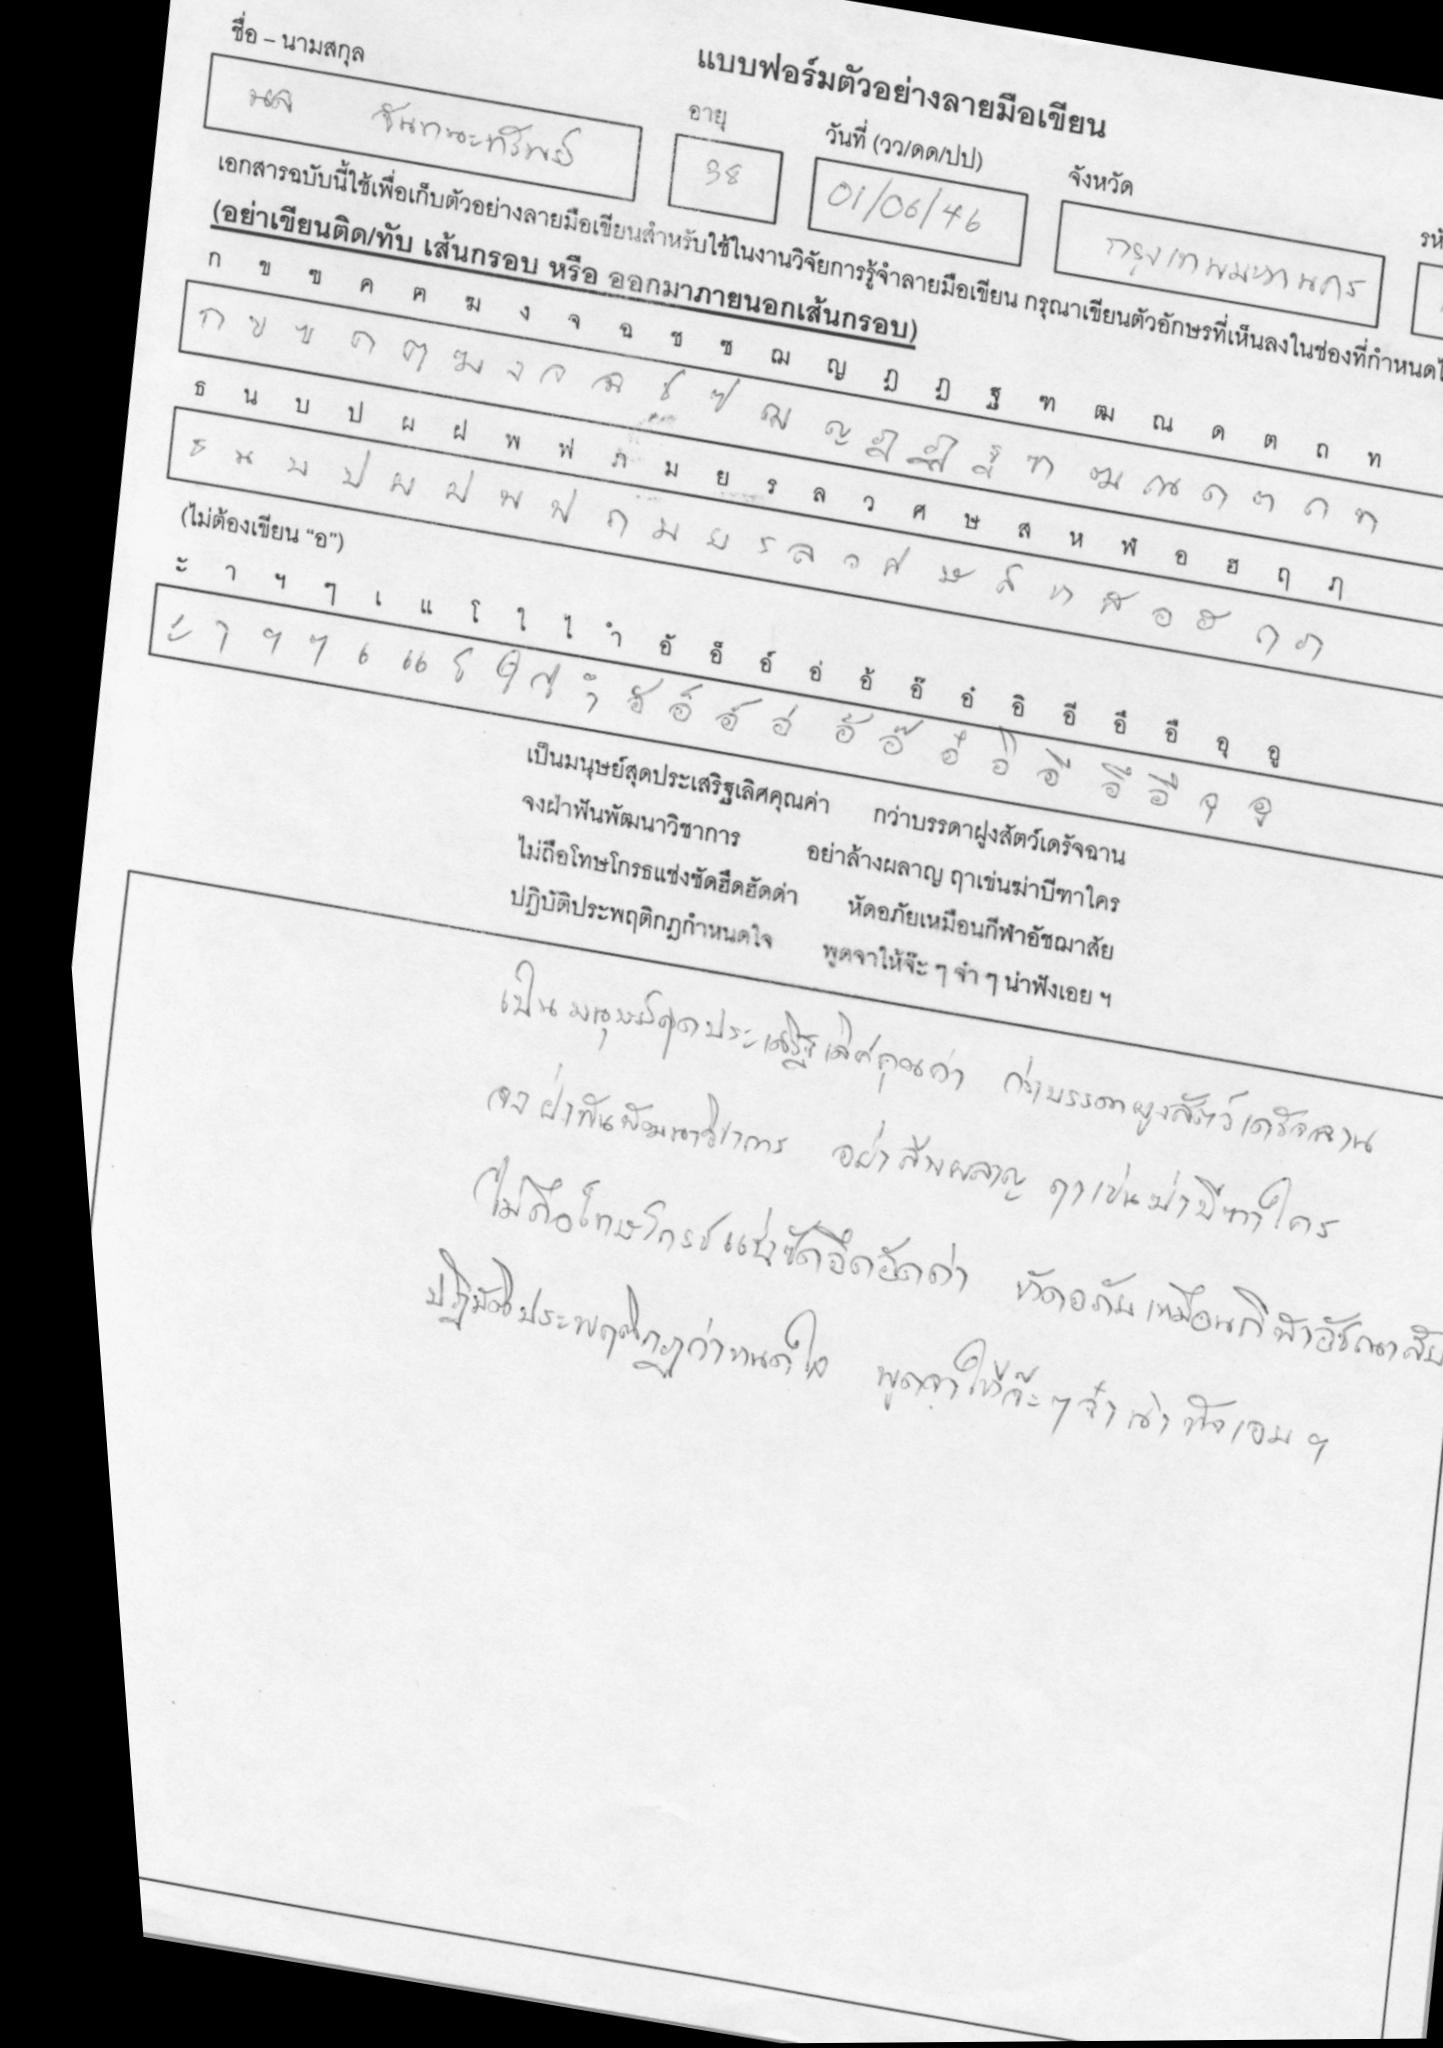 แบบฟอร์มตัวอย่างลายมือเขียน
ชื่อ – นามสกุล อายุ วันที่ (วว/ดด/ปป) จังหวัด
38 01/06/46 กรุงเทพมหานคร
เอกสารฉบับนี้ใช้เพื่อเก็บตัวอย่างลายมือเขียนสำหรับใช้ในงานวิจัยการรู้จำลายมือเขียน กรุณาเขียนตัวอักษรที่เห็นลงในช่องที่กำหนด
(อย่าเขียนติด/ทับ เส้นกรอบ หรือ ออกมาภายนอกเส้นกรอบ)
ก ข ฃ ค ฅ ฆ ง จ ฉ ช ซ ฌ ญ ฎ ฏ ฐ ฑ ฒ ณ ด ต ถ ท
ก ข ฃ ค ฅ ฆ ง จ ฉ ช ซ ฌ ญ ฎ ฏ ฐ ฑ ฒ ณ ด ต ถ ท
ธ น บ ป ผ ฝ พ ฟ ภ ม ย ร ล ว ศ ษ ส ห ฬ อ ฮ ฤ ฦ
ธ น บ ป ผ ฝ พ ฟ ภ ม ย ร ล ว ศ ษ ส ห ฬ อ ฮ ฤ ฦ
(ไม่ต้องเขียน “อ”)
ะ า ฯ ๆ เ แ โ ใ ไ ำ อั อ็ อ์ อ่ อ้ อ๊ อ๋ อิ อี อึ อื อุ อู
ะ า ฯ ๆ เ แ โ ใ ไ ำ อั อ็ อ์ อ่ อ้ อ๊ อ๋ อิ อี อึ อื อุ อู
เป็นมนุษย์สุดประเสริฐเลิศคุณค่า กว่าบรรดาฝูงสัตว์เดรัจฉาน
จงฝ่าฟันพัฒนาวิชาการ อย่าล้างผลาญ ฤาเข่นฆ่าบีฑาใคร
ไม่ถือโทษโกรธแช่งซัดฮึดฮัดด่า หัดอภัยเหมือนกีฬาอัชฌาสัย
ปฏิบัติประพฤติกฎกำหนดใจ พูดจาให้จ๊ะ ๆ จ๋า ๆ น่าฟังเอย ฯ
เป็นมนุษย์สุดประเสริฐเลิศคุณค่า กว่าบรรดาฝูงสัตว์เดรัจฉาน
จงฝ่าฟันพัฒนาวิชาการ อย่าล้างผลาญ ฤาเข่นฆ่าบีฑาใคร
ไม่ถือโทษโกรธแช่งซัดฮึดฮัดด่า หัดอภัยเหมือนกีฬาอัชฌาสัย
ปฏิบัติประพฤติกฎกำหนดใจ พูดจาให้จ๊ะ ๆ จ๋า น่าฟังเอย ฯ